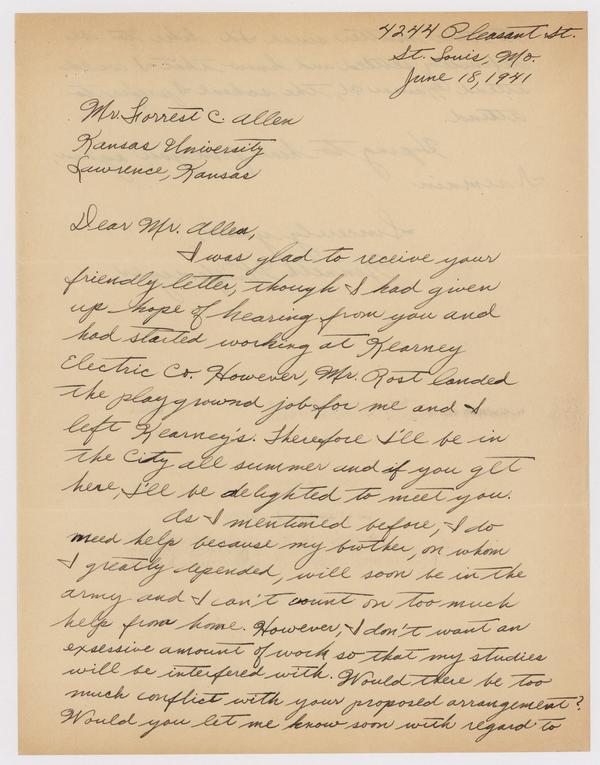 4244 Pleasant St.
St. Louis, Mo.
June 18, 1941
Mr. Forrest C. Allen
Kansas University
Lawrence, Kansas
Dear Mr. Allen,
I was glad to receive your
friendly letter, though I had given
up hope of hearing from you and
had started working at Kearney
Electric Co. However, Mr. Rost landed
the playground job for me and I
left Kearney's. Therefore I'll be in
the City all summer and if you get
here, I'll be delighted to meet you.
As I mentioned before, I do
need help because my brother, on whom
I greatly depended, will soon be in the
army and I can't count on too much
help from home. However, I don't want an
exsessive amount of work so that my studies
will be interfered with. Would there be too
much conflict with your proposed arrangement?
Would you let me know soon with regard to